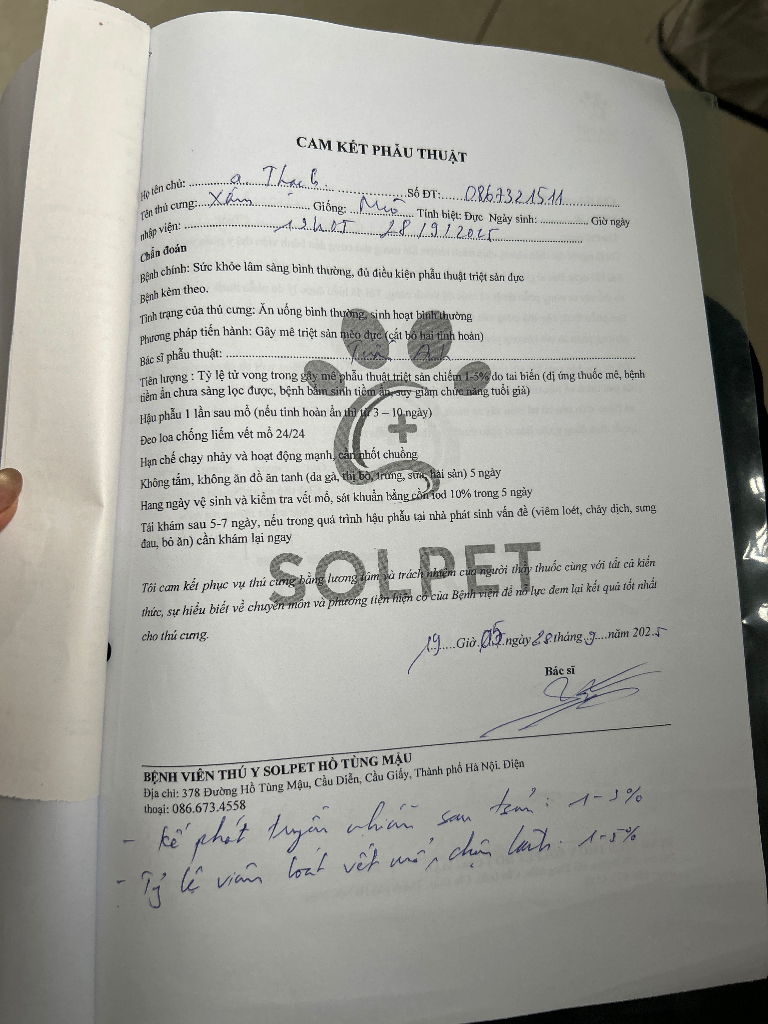 CAM KẾT PHẪU THUẬT
Họ tên chủ: a. Thạch Số ĐT: 0867321511
Tên thú cưng: Xám Giống: Mèo Tính biệt: Đực Ngày sinh: Giờ ngày
nhập viện: 19h05 28/9/2025
Chẩn đoán
Bệnh chính: Sức khỏe lâm sàng bình thường, đủ điều kiện phẫu thuật triệt sản đực
Bệnh kèm theo.
Tình trạng của thú cưng: Ăn uống bình thường, sinh hoạt bình thường
Phương pháp tiến hành: Gây mê triệt sản mèo đực (cắt bỏ hai tinh hoàn)
Bác sĩ phẫu thuật:
Tiên lượng : Tỷ lệ tử vong trong gây mê phẫu thuật triệt sản chiếm 1-5% do tai biến (dị ứng thuốc mê, bệnh
tiềm ẩn chưa sàng lọc được, bệnh bẩm sinh tiềm ẩn, suy giảm chức năng tuổi già)
Hậu phẫu 1 lần sau mổ (nếu tinh hoàn ẩn thì từ 3 – 10 ngày)
Đeo loa chống liếm vết mổ 24/24
Hạn chế chạy nhảy và hoạt động mạnh, cần nhốt chuồng
Không tắm, không ăn đồ ăn tanh (da gà, thịt bò, trứng, sữa, hải sản) 5 ngày
Hang ngày vệ sinh và kiểm tra vết mổ, sát khuẩn bằng cồn Iod 10% trong 5 ngày
Tái khám sau 5-7 ngày, nếu trong quá trình hậu phẫu tại nhà phát sinh vấn đề (viêm loét, chảy dịch, sưng
đau, bỏ ăn) cần khám lại ngay
SOLPET
Tôi cam kết phục vụ thú cưng bằng lương tâm và trách nhiệm của người thầy thuốc cùng với tất cả kiến
thức, sự hiểu biết về chuyên môn và phương tiện hiện có của Bệnh viện để nỗ lực đem lại kết quả tốt nhất
cho thú cưng.
19 Giờ 05 ngày 28 tháng 9 năm 2025
Bác sĩ
BỆNH VIÊN THÚ Y SOLPET HỒ TÙNG MẬU
Địa chỉ: 378 Đường Hồ Tùng Mậu, Cầu Diễn, Cầu Giấy, Thành phố Hà Nội. Điện
thoại: 086.673.4558
- kế phát truyền nhiễm sau : 1-3%
- Tỷ lệ viêm loét vết mổ, chậm lành: 1-5%